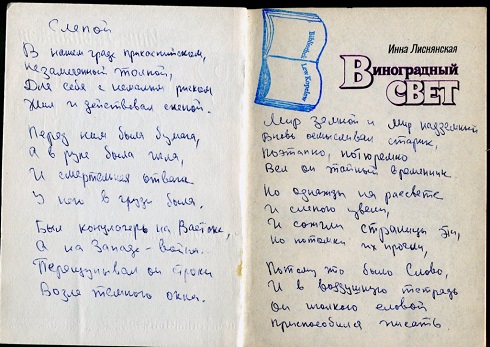 Слепой
В нашем граде прикаспийском,
Незамеченный толпой,
Для себя с немалым риском
Жил и действовал слепой.
Перед ним была бумага,
А в руке была игла,
И смертельная отвага
У него в груди была.
Был концлагерь на Востоке,
А на Западе - война.
Перещупывал он строки
Возле темного окна.
Bibliothek
Lew Kopelew
Инна Лиснянская
Виноградный
СВЕТ
Мир земной и мир надземный
Вновь осмысливал старик,
Поэтапно, потюремно
Вел он тайный временник
Но однажды на рассвете
И слепого увели,
И сожгли страницы эти,
Но потомки их прочли,
Потому что было Слово,
И в воздушную тетрадь
Он иголкою еловой
Приспособился писать.